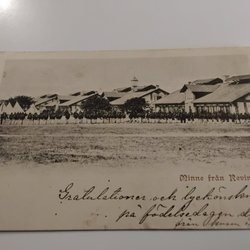 Minne från Revin
Gratulationer och lyckönskn
på födelsedagen d
från